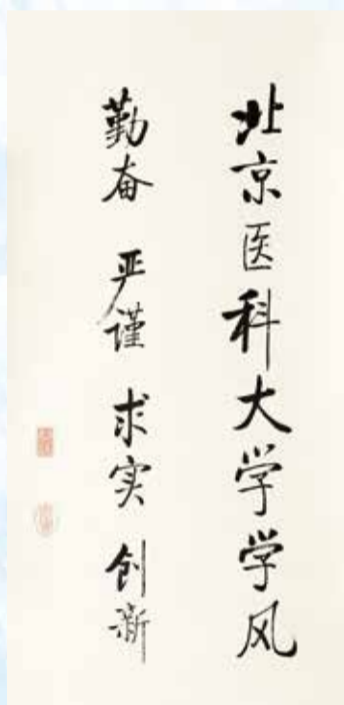 北京医科大学学风
勤奋 严谨 求实 创新